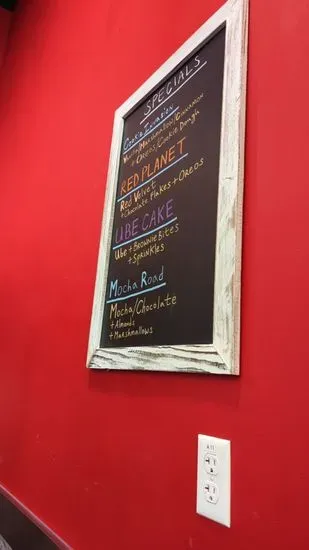 SPECIALS
Cookie Invasion
Vanilla/Marshmallow/Cinnamon
+ Oreos/Cookie Dough
RED PLANET
Red Velvet
+Chocolate Flakes + Oreos
UBE CAKE
Ube + Brownie Bites
+ Sprinkles
Mocha Road
Mocha/Chocolate
+ Almonds
+ Marshmallows
A11